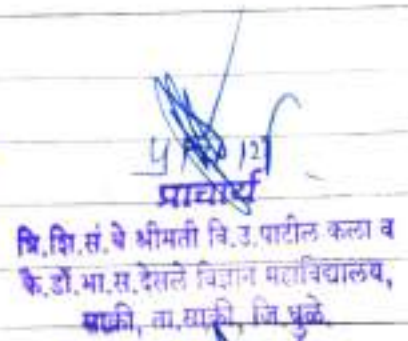 प्राचार्य
वि.शि.सं.चे श्रीमती वि.उ.पाटील कला व
कै.डॉ.भा.स.देसले विज्ञान महाविद्यालय,
साक्री, ता.साक्री, जि.धुळे.